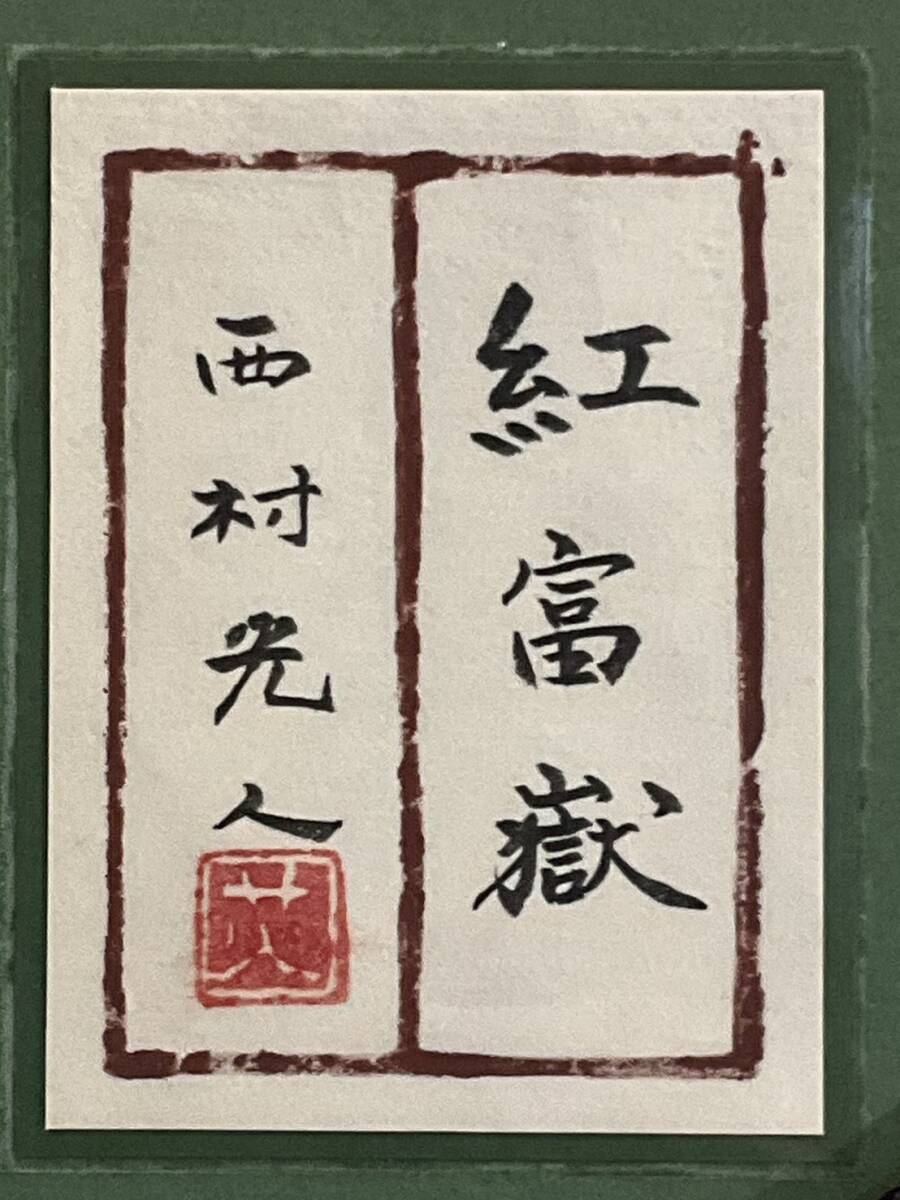 紅富嶽
西村光人
英